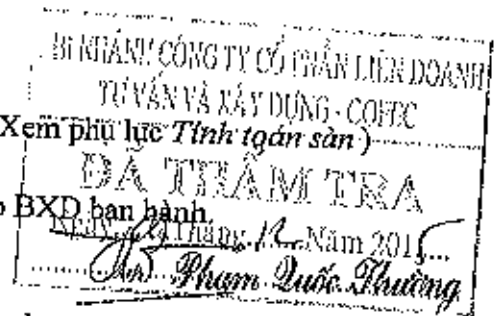 CHI NHÁNH CÔNG TY CỔ PHẦN LIÊN DOANH
TƯ VẤN VÀ XÂY DỰNG - COFEC
Xem phụ lục Tính toán sàn)
ĐÃ THẨM TRA
BXD ban hành.
Ngày Tháng 12 Năm 2015
Phạm Quốc Thường